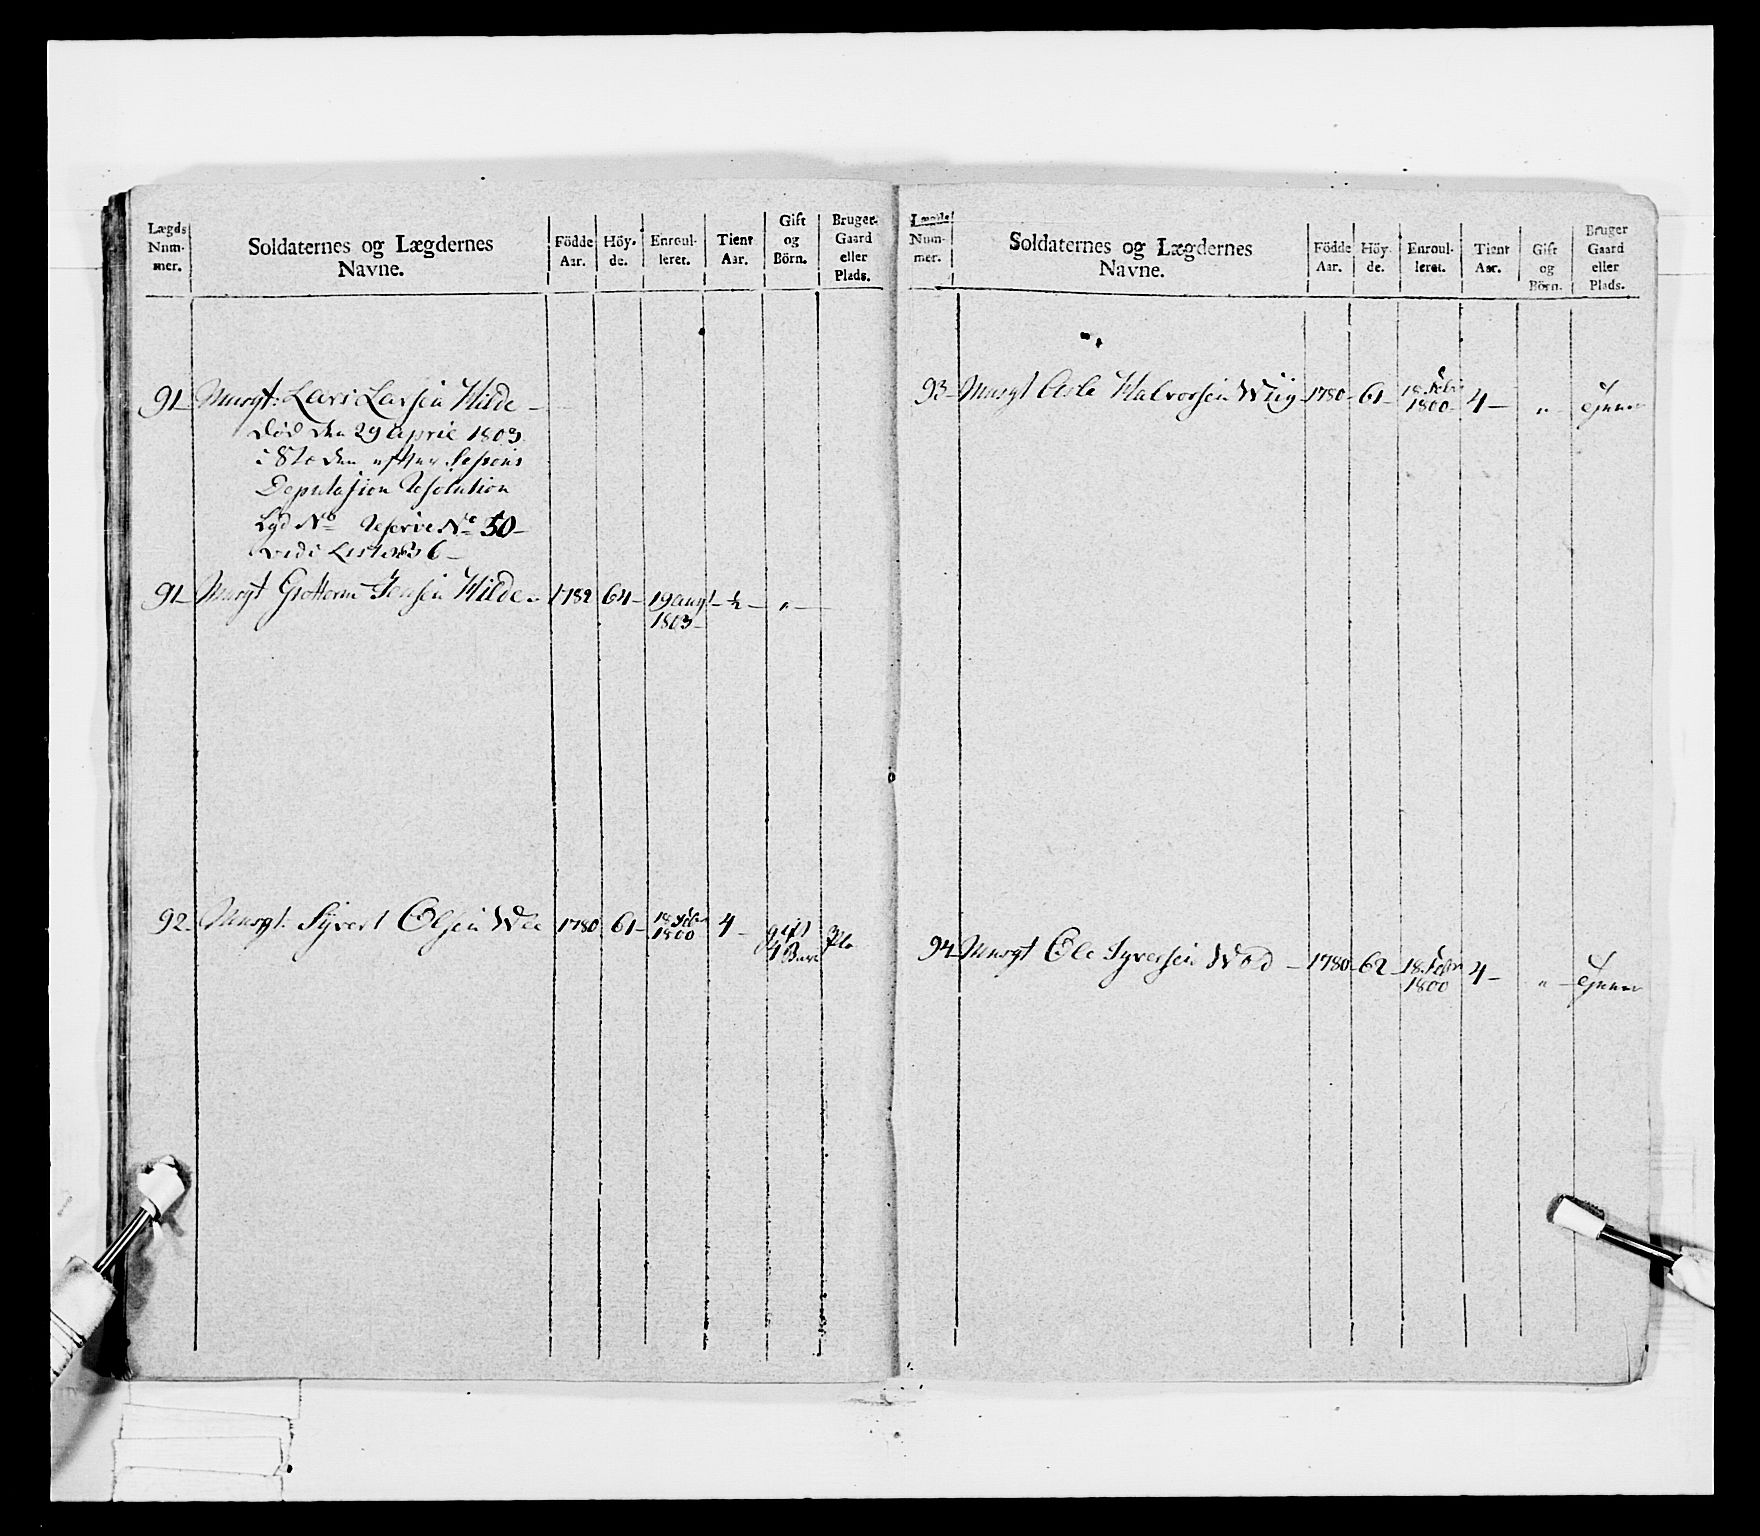 Lægds
Num-
mer.
Soldaternes og Lægdernes
Navne.
Födde
Aar.
Höy-
de.
Enroul-
leret.
Tient
Aar.
Gift
og
Börn.
Bruger
Gaard
eller
Plads.
91 Musqt: Lars Larsen Hilde
død den 29 April 1803
i Steden efter Sessions
Deputasion Resolution
Lgd No Reserve No 50
vide Listen 36
91 Musqt Guttorm Jensen Hilde 1782 64 19 Augt ½ "
1803
92 Musqt. Syvert Olsen 1780 61 18 Febr 4 gift Pla
1800 4 Børn
Lægds
Num-
mer.
Soldaternes og Lægdernes
Navne.
Födde
Aar.
Höy-
de.
Enroul-
leret.
Tient
Aar.
Gift
og
Börn.
Bruger
Gaard
eller
Plads.
93 Musqt Asle Halvorsen Wiig 1780 61 18 Febr 4 " tjener
1800
94 Musqt Ole Syversen 1780 62 18 Febr 4 " tjener
1800